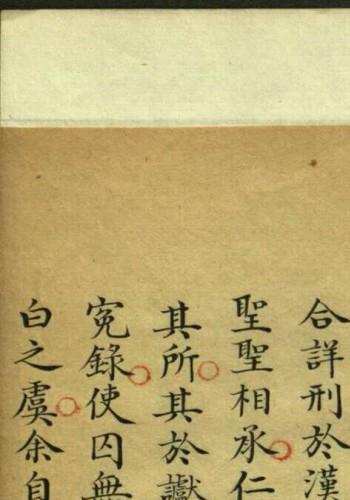 合詳刑於漢
聖聖相承仁
其所其於讞
寃錄使囚無
白之虞余自